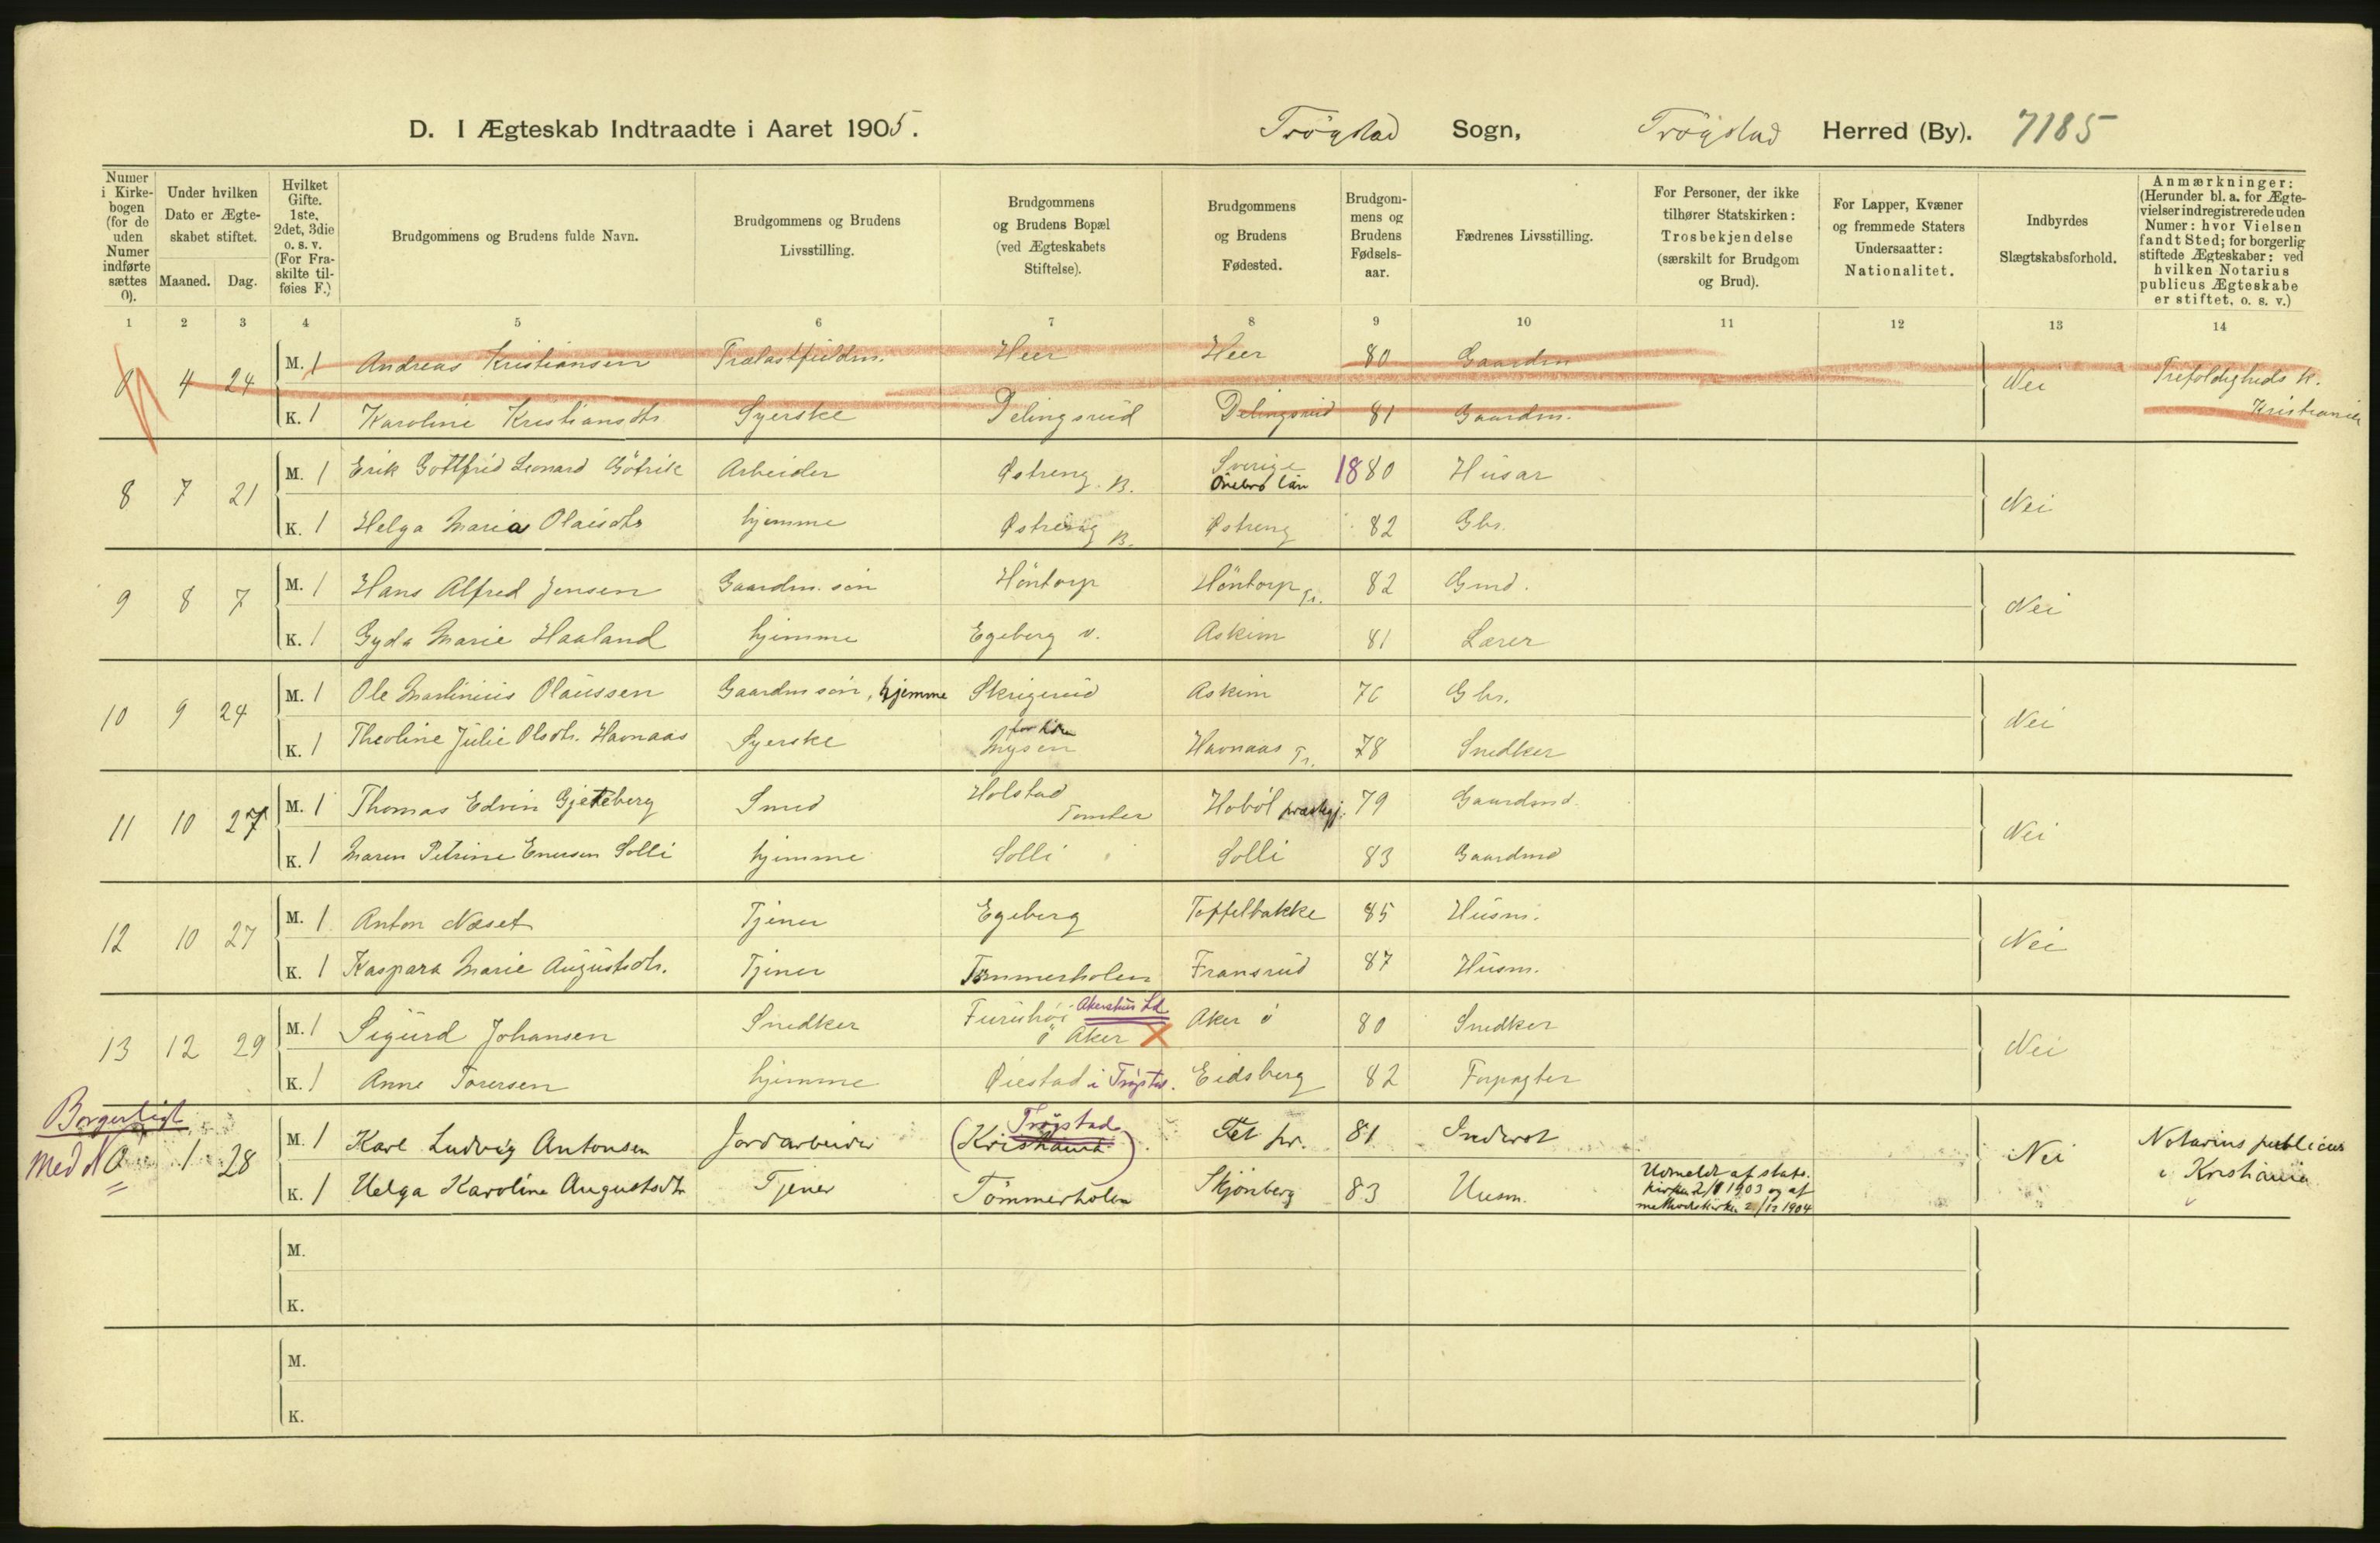 D. I Ægteskab Indtraadte i Aaret 1905. Trögstad Sogn, Trögstad Herred (By). 7185
Numer i Kirke-bogen (for de uden Numer indførte sættes 0).
Under hvilken Dato er Ægte-skabet stiftet.
Maaned. Dag.
Hvilket Gifte. 1ste, 2det, 3die o. s. v. (For Fra-skilte til-føies F.)
Brudgommens og Brudens fulde Navn.
Brudgommens og Brudens Livsstilling.
Brudgommens og Brudens Bopæl (ved Ægteskabets Stiftelse).
Brudgommens og Brudens Fødested.
Brudgom-mens og Brudens Fødsels-aar.
Fædrenes Livsstilling.
For Personer, der ikke tilhører Statskirken: Trosbekjendelse (særskilt for Brudgom og Brud).
For Lapper, Kvæner og fremmede Staters Undersaatter: Nationalitet.
Indbyrdes Slægtskabsforhold.
Anmærkninger: (Herunder bl. a. for Ægte-vielser indregistrerede uden Numer: hvor Vielsen fandt Sted; for borgerlig stiftede Ægteskaber: ved hvilken Notarius publicus Ægteskabe er stiftet, o. s. v.)
1 2 3 4 5 6 7 8 9 10 11 12 13 14
0 4 24 M. 1 Andreas Kristiansen Heer Heer 80 Gaardm Nei Trefoldigheds k. Kristiania
K. 1 Karoline Kristiansdtr Syerske Delingsrud Delingsrud 81 Gaardm.
8 7 21 M. 1 Erik Gottfrid Leonard Götrik Arbeider Østreng. B. Sverige Örebro län 1880 Husar Nei
K. 1 Helga Maria Olausdtr hjemme Østreng B. Østreng 82 Gbr.
9 8 7 M. 1 Hans Alfred Jensen Gaardm. sön Höntorp Höntorp Tr. 82 Gmd. Nei
K. 1 Gyda Marie Haaland hjemme Egeberg v. Askim 81 Lærer
10 9 24 M. 1 Ole Martinius Olaussen Gaardm sön, hjemme Skrigerud Askim 76 Gbr. Nei
K. 1 Theoline Julie Olsdtr. Havnaas Syerske Mysen Havnaas Tr. 78 Snedker
11 10 27 M. 1 Thomas Edvin Gjeteberg Smed Holstad Tomter Haböl præstegj. 79 Gaardmd. Nei
K. 1 Maren Petrine Enersen Solli hjemme Solli Solli 83 Gaardmd
12 10 27 M. 1 Anton Næset Tjener Egeberg Toffelbakke 85 Husm. Nei
K. 1 Kaspara Marie Augustsdtr. Tjener Tømmerholen Fransrud 87 Husm.
13 12 29 M. 1 Sigurd Johansen Snedker Furuhöi Akershus Ld ö Aker X Aker ö 80 Snedker Nei
K. 1 Anne Torersen hjemme Øiestad i Trøgstad. Eidsberg 82 Forpagter
Borgerligt
med N 0 1 28 M. 1 Karl Ludvig Antonsen Jordarbeider (Kristiania) Trögstad Fet pr. 81 Inderst Nei Notarius publicus i Kristiania
K. 1 Helga Karoline Augustsdtr Tjener Tömmerholen Skjönberg 83 Husm. Udmeldt af stats-kirken 2/8 1903 og af methodistkirken 2/12 1904
M.
K.
M.
K.